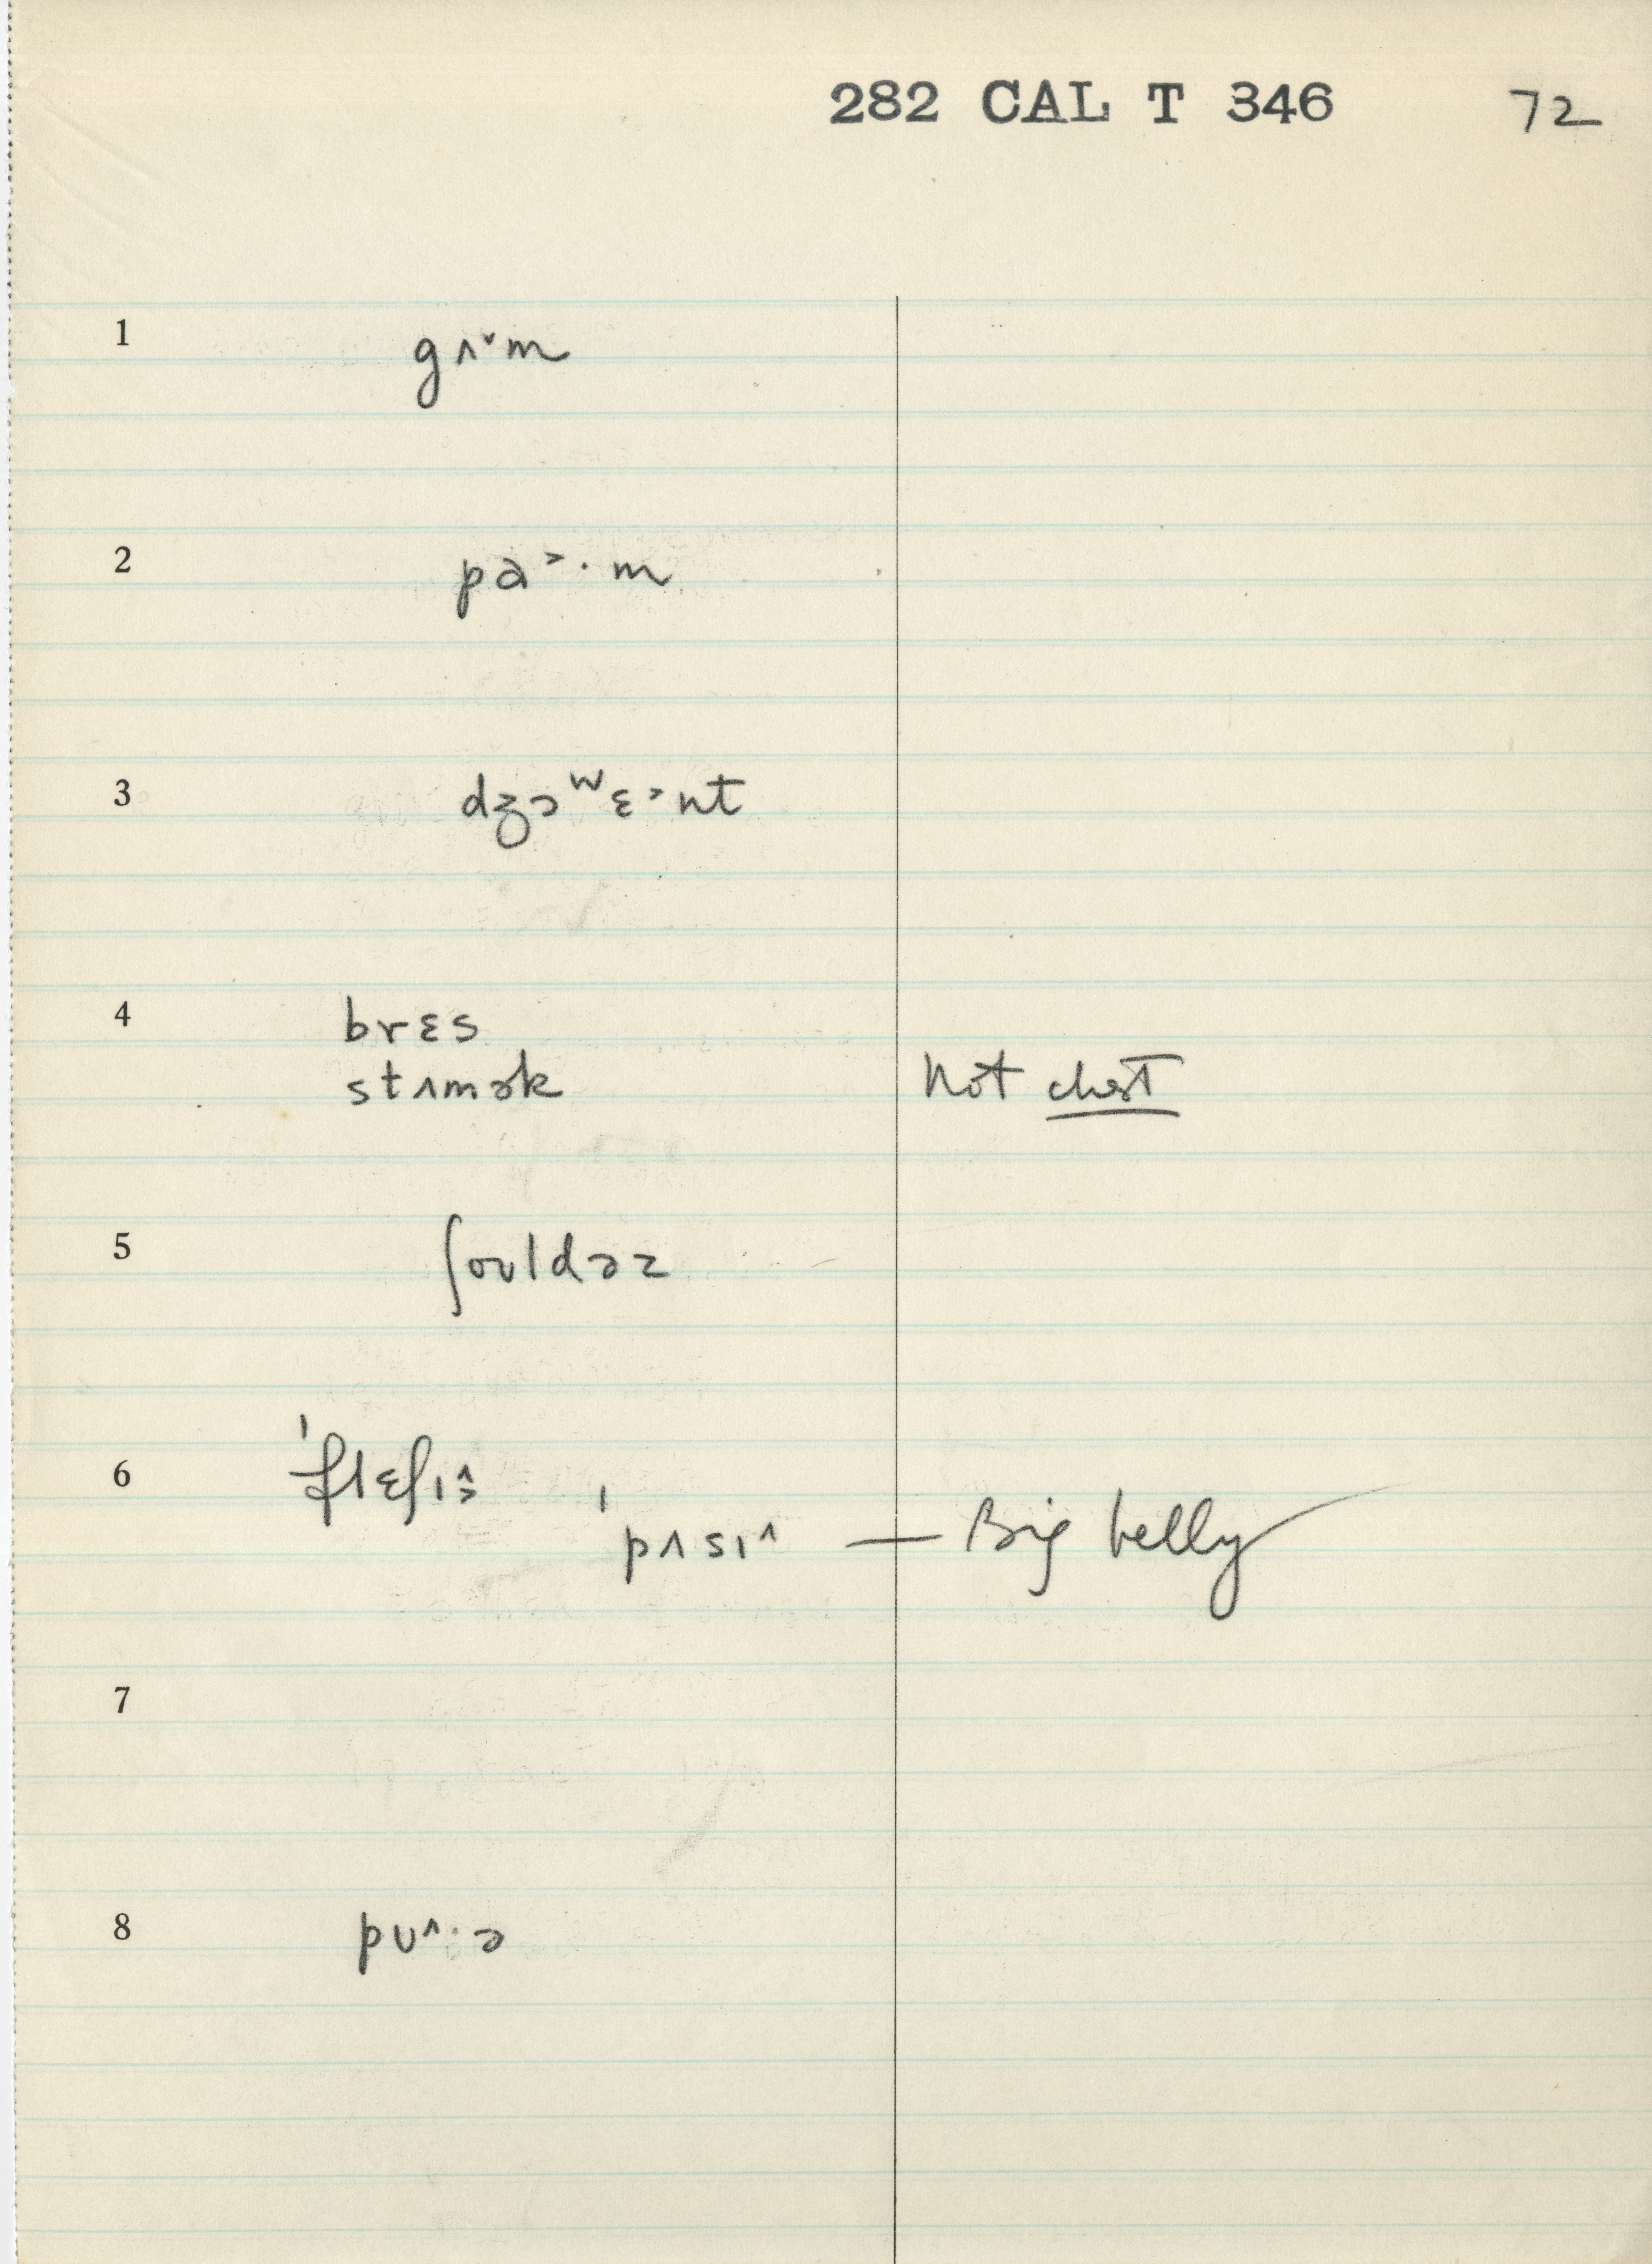 282 CAL T 346 72
1 gʌ˅m
2 pa˃·m
3 dʒɔʷɛ˃nt
4 brɛs
stʌmək Not chest
5 ʃouldəz
6 ˈflɛʃɪ˄˃
ˈpʌsɪ˄ — Big belly
7
8 pʊ˄·ə